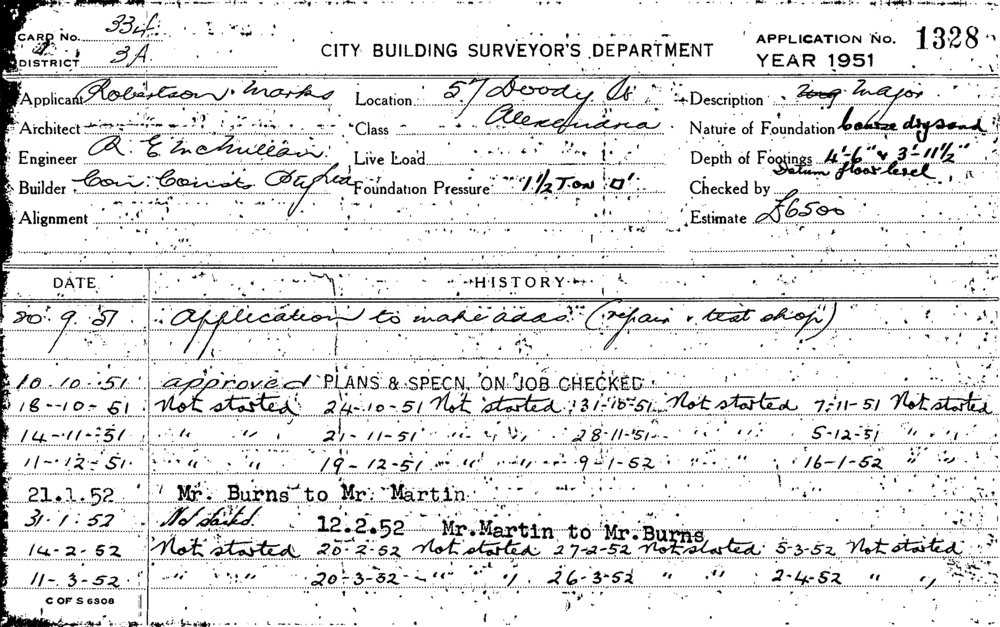 CARD No. 334
DISTRICT 3A
CITY BUILDING SURVEYOR'S DEPARTMENT
APPLICATION No. 1328
YEAR 1951
Applicant Robertson & Marks Location 57 Doody St Description Major
Architect Class Alexandria Nature of Foundation Coarse dry sand
Engineer R E McMillan Live Load Depth of Footings 4'-6" & 3'-11½"
Datum floor level
Builder Con. Consts Pty Ltd Foundation Pressure 1½ Ton □' Checked by
Alignment Estimate £6500
DATE HISTORY
20.9.51 Application to make adds (repair & test shop)
10.10.51 approved PLANS & SPECN. ON JOB CHECKED
18-10-51 Not started 24-10-51 Not started 31-10-51 Not started 7-11-51 Not started
14-11-51 " " 21-11-51 " " 28-11-51 " " 5-12-51 " "
11-12-51 " " 19-12-51 " " 9-1-52 " " 16-1-52 " "
21.1.52 Mr. Burns to Mr. Martin
31.1.52 Not started 12.2.52 Mr.Martin to Mr.Burns
14-2-52 Not started 20-2-52 Not started 27-2-52 Not started 5-3-52 Not started
11-3-52 " " 20-3-52 " " 26-3-52 " " 2-4-52 " "
C OF S 6308